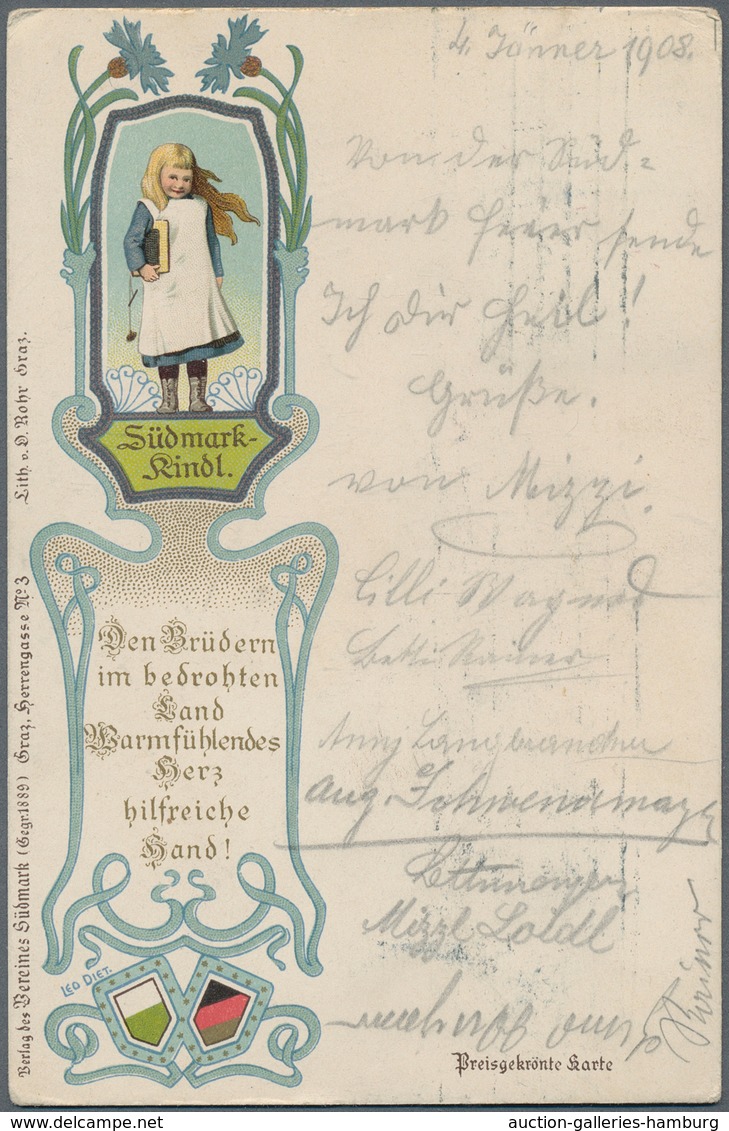 4. Jänner 1908.
Von der Süd=
mark feier sende
Ich dir Heil!
Grüße.
von Mizzi.
Lilli Wagner
Betti Rainer
Anny
Aug.
Mizzl Loidl
Südmark-
Kindl.
Den Brüdern
im bedrohten
Land
Warmfühlendes
Herz
hilfreiche
Hand!
LEO DIET.
Preisgekrönte Karte
Lith. v. O. Rohr Graz.
Verlag des Vereines Südmark (Gegr. 1889) Graz, Herrengasse Nº 3
auction-galleries-hamburg